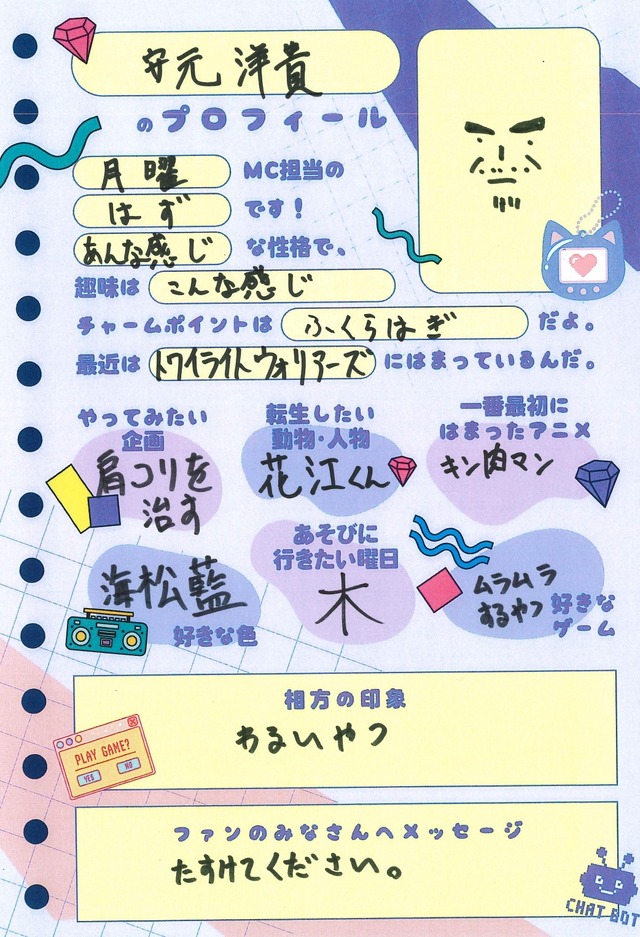 安元 洋貴
のプロフィール
月曜 MC担当の
はず です！
あんな感じ な性格で、
趣味は こんな感じ
チャームポイントは ふくらはぎ だよ。
最近は トワイライトウォリアーズ にはまっているんだ。
やってみたい
企画
肩コリを
治す
転生したい
動物・人物
花江くん
一番最初に
はまったアニメ
キン肉マン
海松藍
好きな色
あそびに
行きたい曜日
木
ムラムラ
するやつ
好きな
ゲーム
相方の印象
わるいやつ
PLAY GAME?
YES NO
ファンのみなさんへメッセージ
たすけてください。
CHAT BOT